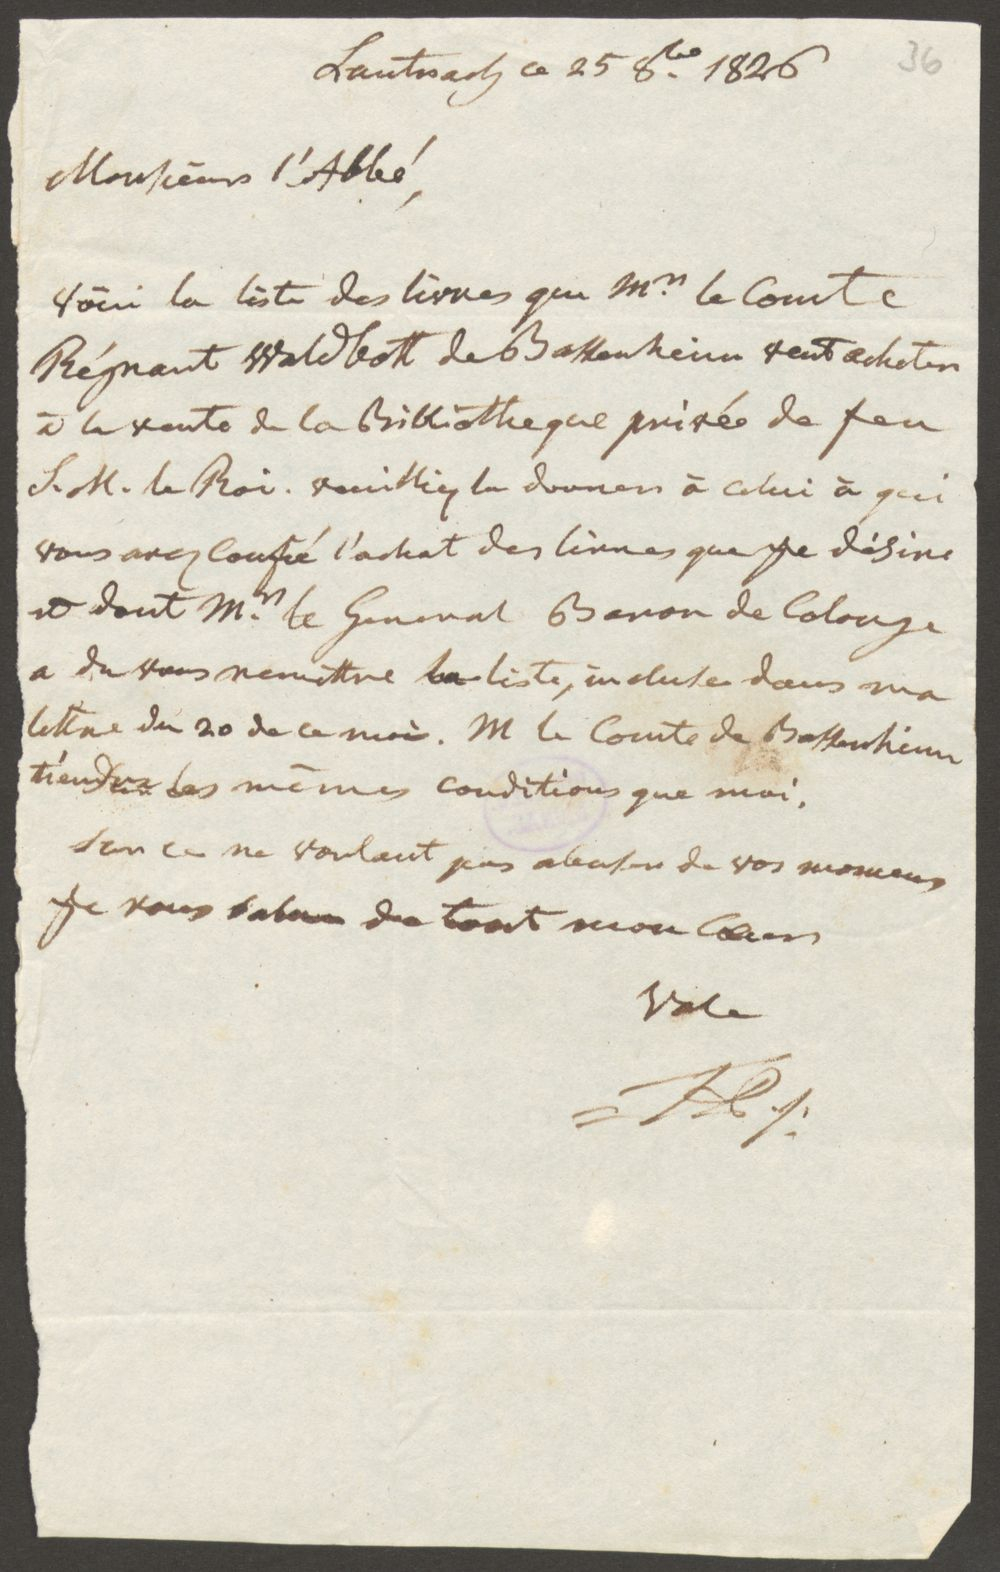 Lautrach ce 25 8bre 1826
36
Monsieur l'Abbé,
Voici la liste des livres que Mr. le Comte
Régnant Waldbott de Bassenheim veut acheter
à la vente de la Bibliotheque privée de feu
S. M. le Roi. veuilliez la donner à celui à qui
vous avez confié l'achat des livres que je désire
et dont Mr. le General Baron de Colonge
a du vous remettre la liste, incluse dans ma
lettre du 20 de ce mois. M le Comte de Bassenheim
tiendra les mêmes conditions que moi.
Sur ce ne voulant pas abuser de vos momens
je vous salue de tout mon Cœur
Vale